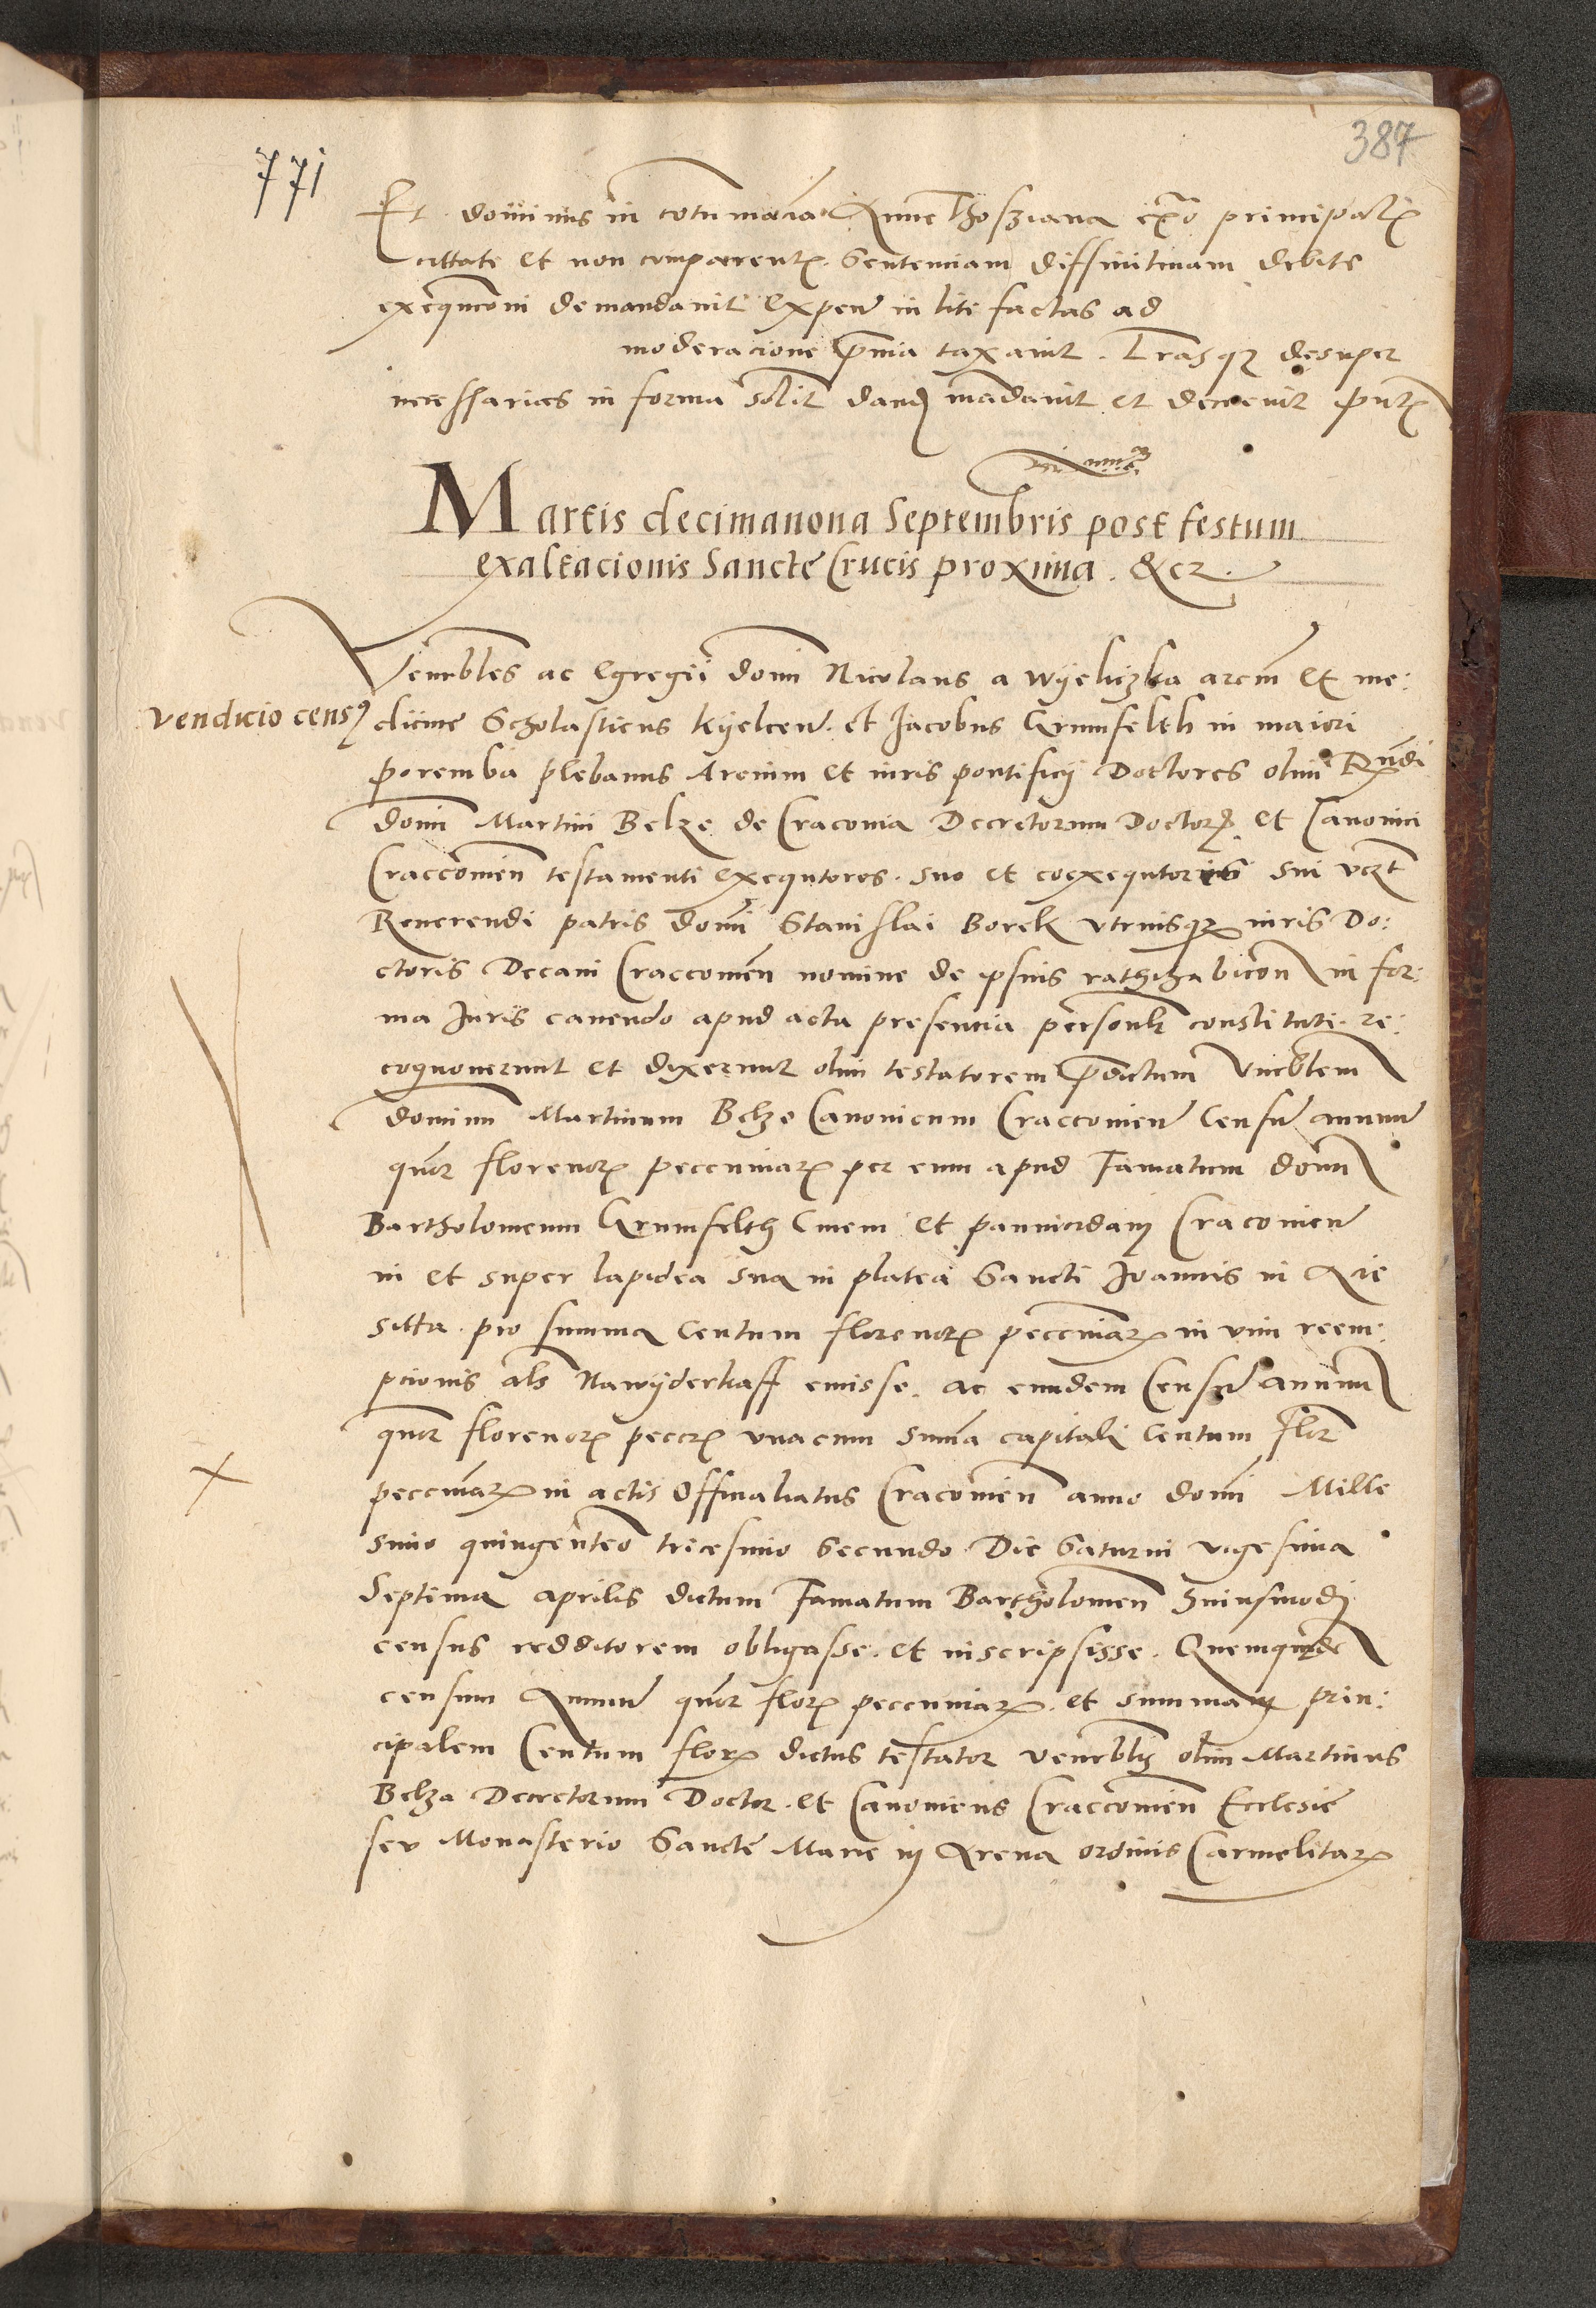 387
771
Et dominus in cotumacia Anne Thosziana exo principal
cittate et non comparent. Sentenciam diffinitivam debite
exequcioni demandavit expen in lite factas ad
moderacione pmia taxavit. Lrasqz desuper
necessarias in forma solit dand madavit et decrevit pnt
Martis decimanona Septembris post festum
exaltacionis Sancte Crucis proxima. &cz.
Venrbles ac egregii domi Nicolaus a Wyeliczka arcm et me:
vendicio cens9
dicine Scholasticus kyelcen. et Jacobus Grumfelth in maiori
poremba plebanus Arcium et iuris pontificij Doctores olim Rndi
domi Martini Belze de Cracovia Decretorum Doctor et Canonici
Craccovien testamenti exequtores. suo et coexequtoris sui vczt
Reverendi patris domi Stanislai Borek utriusqz iuris Do:
ctoris Decani Craccovien nomine de ipsius rathihabicon in for:
ma Juris cavendo apud acta presencia personlr constituti re:
cognoverunt et dixerunt olim testatorem pdictum Vnrblem
dominu Martinum Belze Canonicum Craccovien Censu annuu
quor florenor peccuniar per eum apud Famatum domi
Bartholomeum Grumfelth Civem et pannicidam Cracovien
in et super lapidea sua in platea Sancti Joannis in Acie
sitta pro summa Centum florenor peccuniar in vim reem:
pcionis als Nawyderkaff emisse. ac eundem Censu annuu
quor florenor peccr unacum suma capitali Centum flor
peccuniar in actis Officialatus Cracovien anno domi Mille
simo quingenteo tricesimo Secundo Die Saturni vigesima
Septima aprilis dictum Famatum Bartholomeu huiusmodi
census redditorem obligasse. et inscripsisse. Quemquide
censum Annuu quor flor peccuniar. et summam prin:
cipalem Centum flor dictus testator venrblis olim Martinus
Belza Decretorum Doctor et Canonicus Craccovien Ecclesie
seu Monasterio Sancte Marie in Arena ordinis Carmelitar